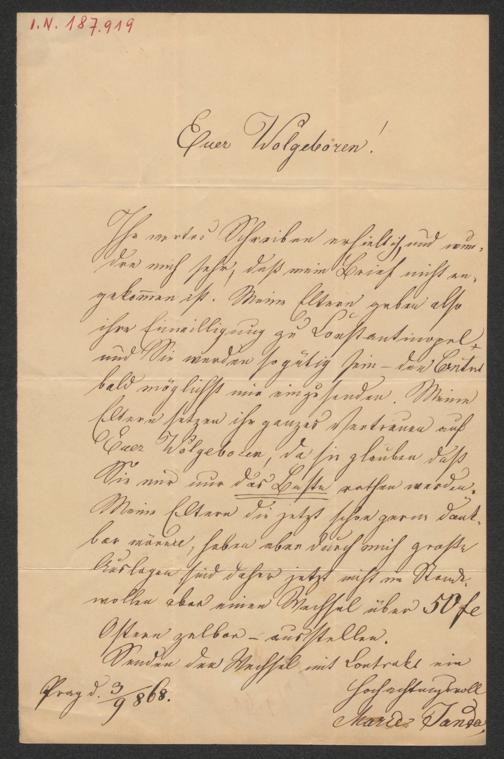 I.N. 187.919
Euer Wolgeboren!
Ihr wertes Schreiben erhielt ich, und wun-
dre mich sehr, daß mein Brief nicht an-
gekommen ist. Meine Eltern geben also
ihre Einwilligung zu Constantinopel,
und Sie werden so gütig sein – den Contrat
bald möglichst mir einzusenden. Meine
Eltern setzen ihr ganzes Vertrauen auf
Euer Wolgeboren, da sie glauben daß
Sie mir nur das Beste rathen werden.
Meine Eltern die jetzt schon gerne dank-
bar wären, haben aber durch mich große
Auslagen sind daher jetzt nicht im Stande
wollen aber einen Wechsel über 50 fl
Ostern zelbar – ausstellen.
Senden den Wechsel mit Contrakt ein
Hochachtungsvoll
Prag d. 3/9 868.
Marie Janda